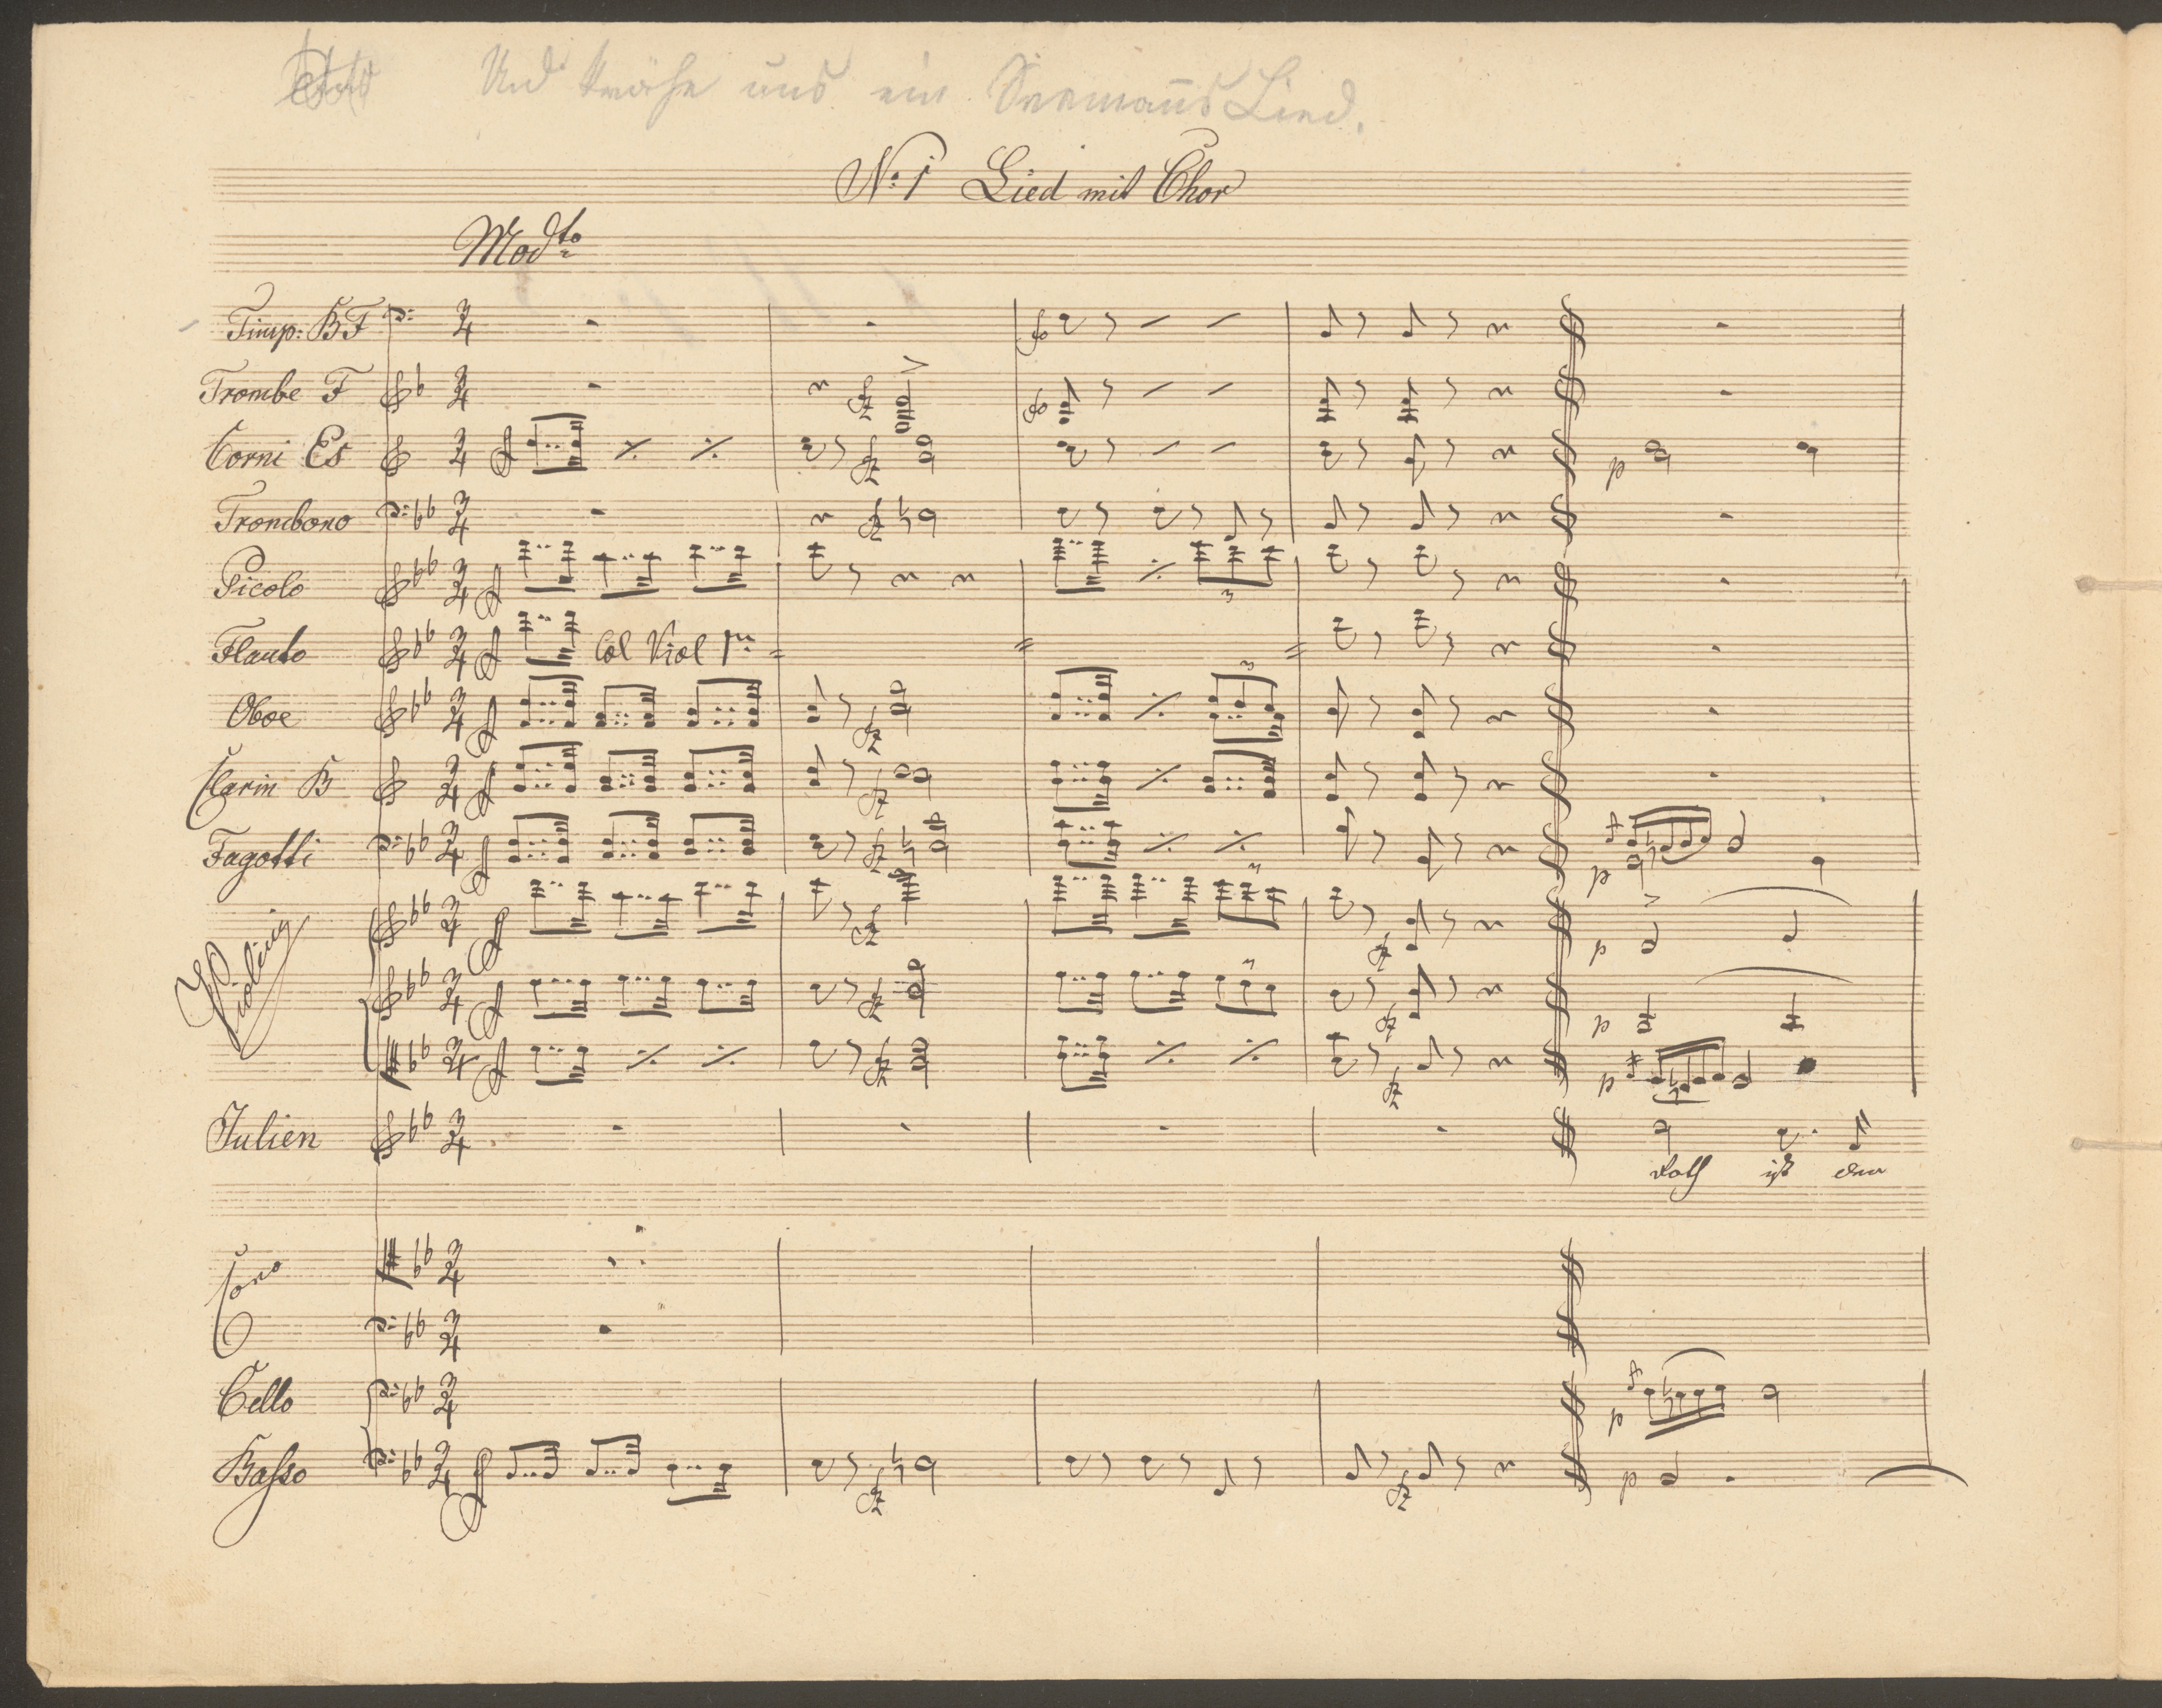 Und krähe uns ein Seemanns Lied.
No: 1 Lied mit Chor
Modto
Timp: B F
Trombe F
Corni Es
Trombono
Picolo
Flauto Col Viol 1mo
Oboe
Clarin B
Fagotti
Violini
Julien
roth ist der
Coro
Cello
Basso